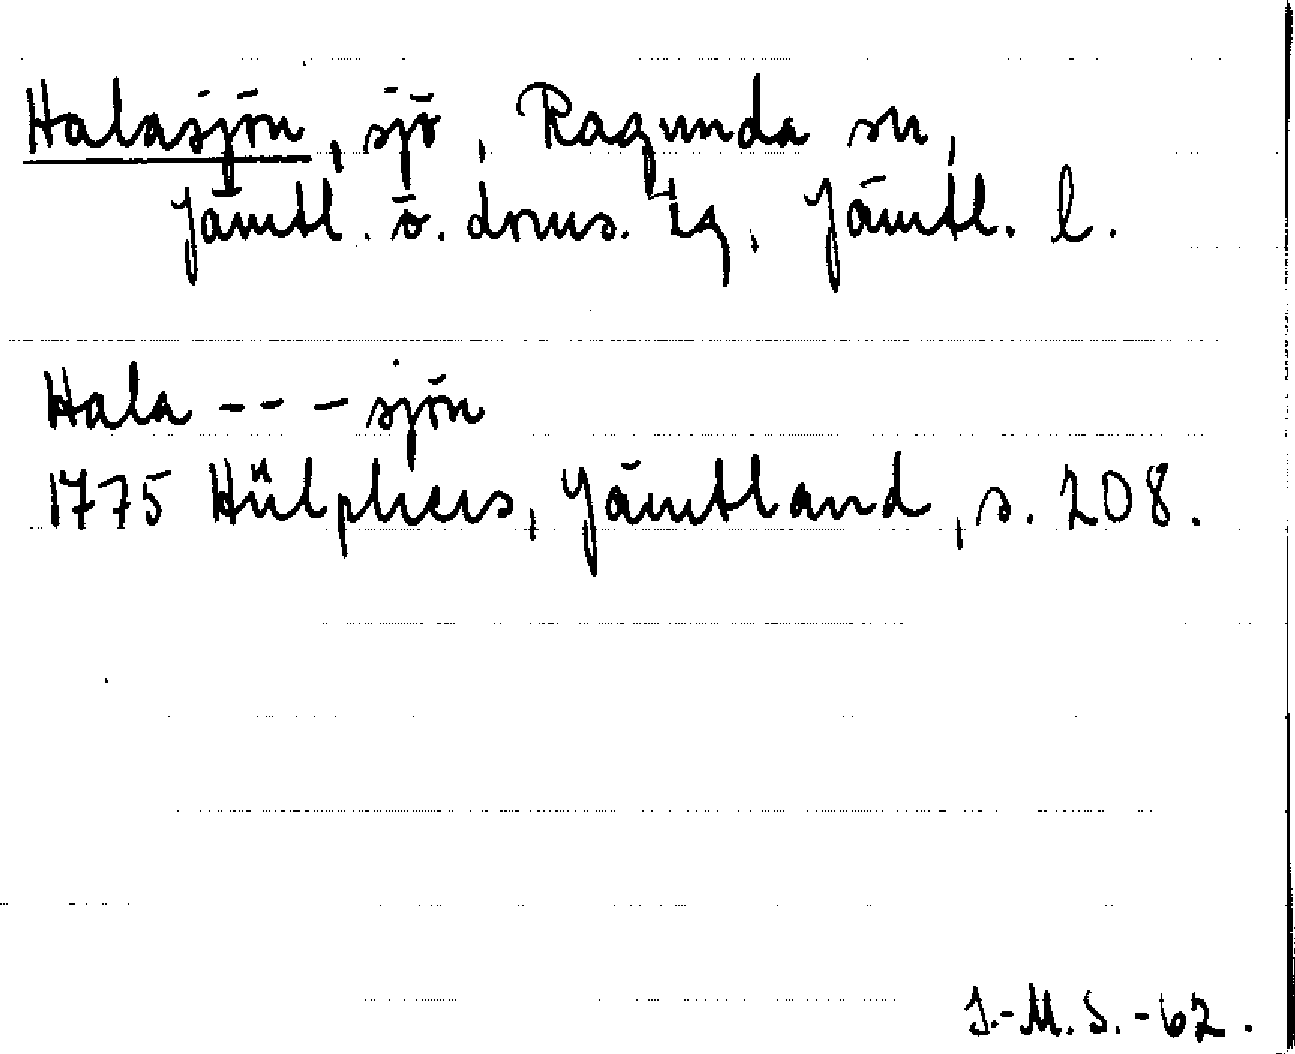 Halasjön, sjö, Ragunda sn,
Jämtl. ö. doms. tg, Jämtl. l.
Hala --- sjön
1775 Hülphers, Jämtland, s. 208.
I.-M.S.-62.